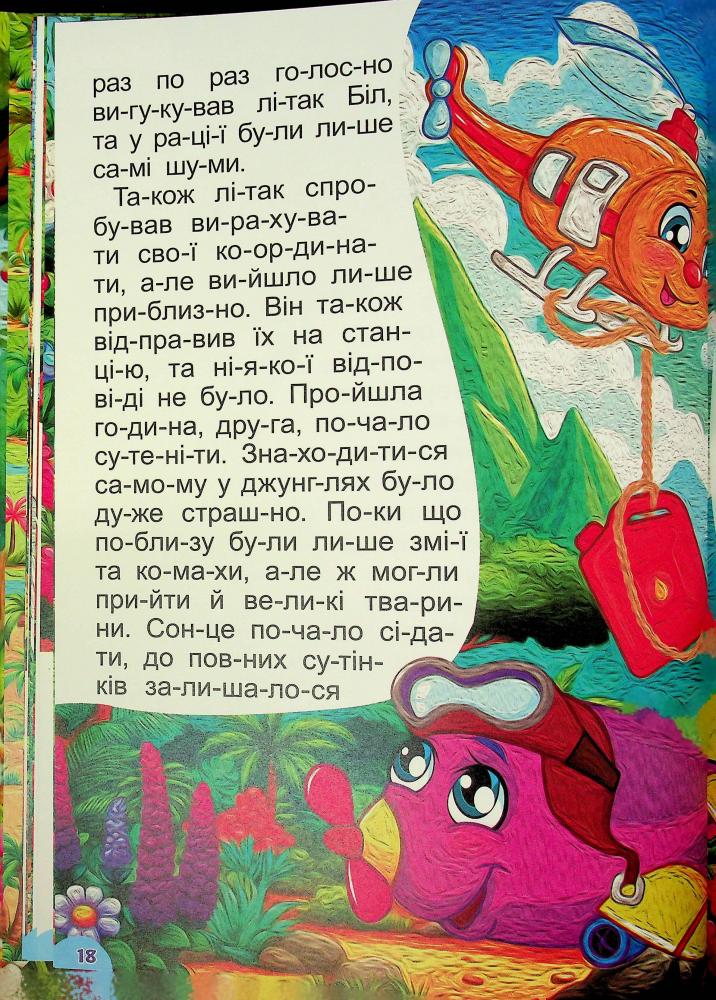 раз по раз го-лос-но
ви-гу-ку-вав лі-так Біл,
та у ра-ці-ї бу-ли ли-ше
са-мі шу-ми.
Та-кож лі-так спро-
бу-вав ви-ра-ху-ва-
ти сво-ї ко-ор-ди-на-
ти, а-ле ви-йшло ли-ше
при-близ-но. Він та-кож
від-пра-вив їх на стан-
ці-ю, та ні-я-ко-ї від-по-
ві-ді не бу-ло. Про-йшла
го-ди-на, дру-га, по-ча-ло
су-те-ні-ти. Зна-хо-ди-ти-ся
са-мо-му у джунг-лях бу-ло
ду-же страш-но. По-ки що
по-бли-зу бу-ли ли-ше змі-ї
та ко-ма-хи, а-ле ж мог-ли
при-йти й ве-ли-кі тва-ри-
ни. Сон-це по-ча-ло сі-да-
ти, до пов-них су-тін-
ків за-ли-ша-ло-ся
18